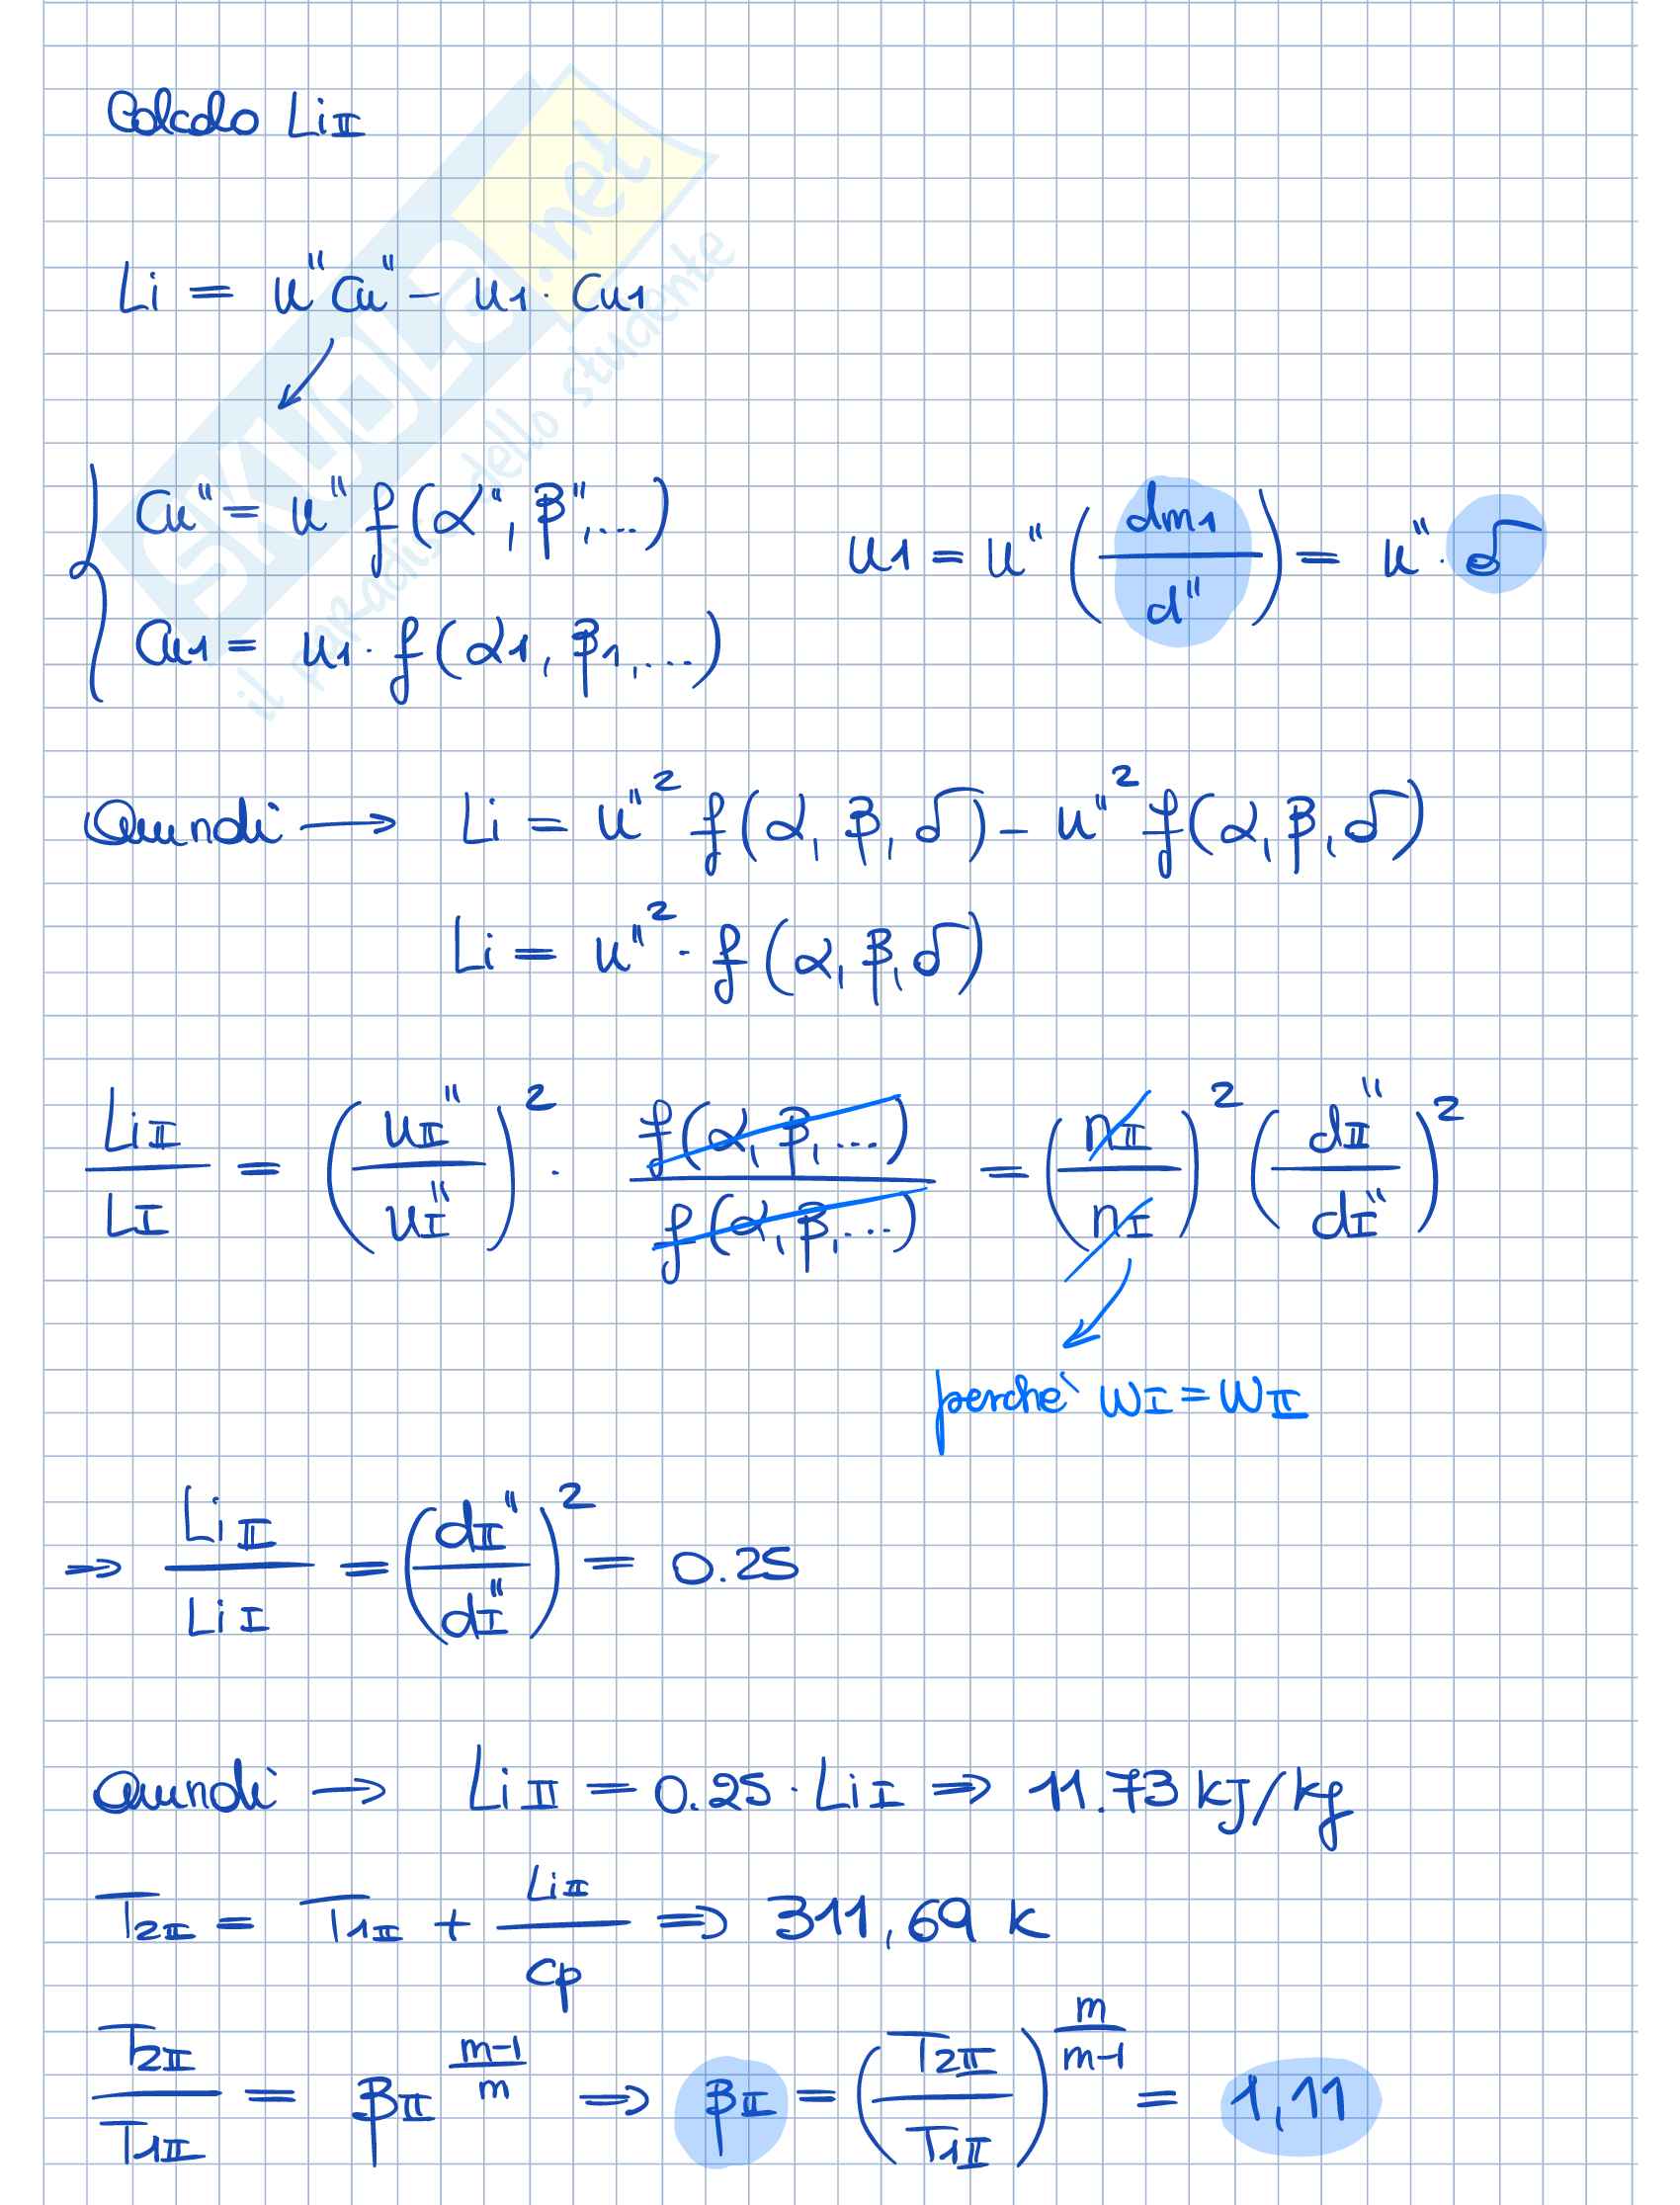 Calcolo Li II
Li = u'' cu'' - u1 · cu1
cu'' = u'' f(α'', β'', ...)
u1 = u'' (dm1 / d'') = u'' · δ
cu1 = u1 · f(α1, β1, ...)
Quindi → Li = u''² f(α, β, δ) - u''² f(α, β, δ)
Li = u''² · f(α, β, δ)
Li II / L I = (u II'' / u I'')² · f(α, β, ...) / f(α, β, ...) = (n II / n I)² (d II'' / d I'')²
perchè ω I = ω II
⇒ Li II / Li I = (d II'' / d I'')² = 0.25
Quindi → Li II = 0.25 · Li I ⇒ 11.73 kJ/kg
T2 II = T1 II + Li II / cp ⇒ 311,69 K
T2 II / T1 II = β II^(m-1 / m) ⇒ β II = (T2 II / T1 II)^(m / m-1) = 1,11
SKUOLA.net
il paradiso dello studente